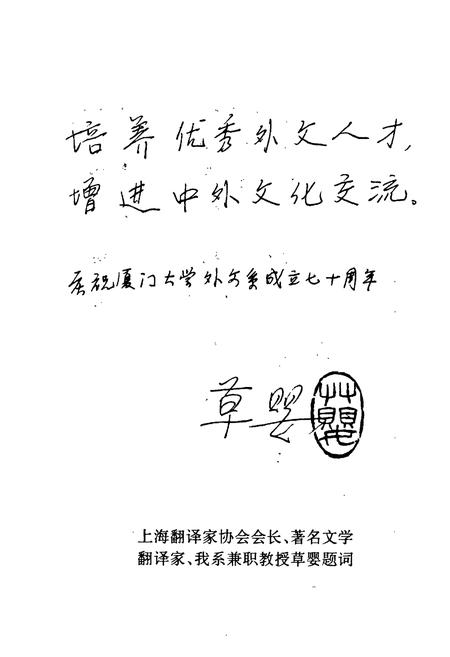 培养优秀外文人才，
增进中外文化交流。
庆祝厦门大学外文系成立七十周年
草婴
草婴
上海翻译家协会会长、著名文学
翻译家、我系兼职教授草婴题词